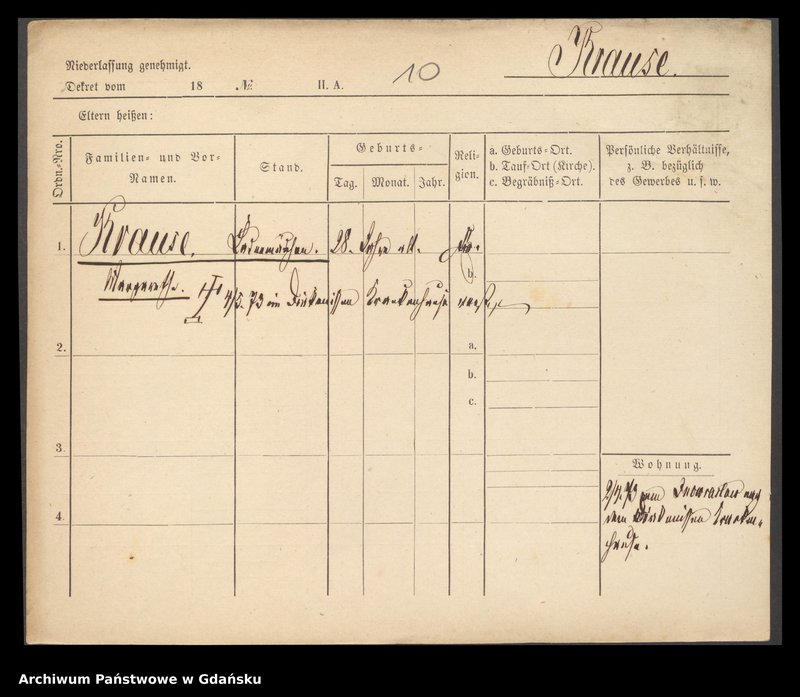 Krause.
Niederlassung genehmigt.
Dekret vom 18 № II. A. 10
Eltern heißen:
Ordn.-Nro.
Familien- und Vor-Namen.
Stand.
Geburts-
Tag. Monat. Jahr.
Religion.
a. Geburts-Ort.
b. Tauf-Ort (Kirche).
c. Begräbniß-Ort.
Persönliche Verhältnisse,
z. B. bezüglich
des Gewerbes u. s. w.
1. Krause, 28. Jahre alt. Ev.
b.
Margarethe. 4/5. 73 im Diakonissen Krankenhause verst.
2. a.
b.
c.
3.
Wohnung.
2/4. 73 von Inowraclaw nach
4. dem Diakonissen Kranken-
hause.
Archiwum Państwowe w Gdańsku